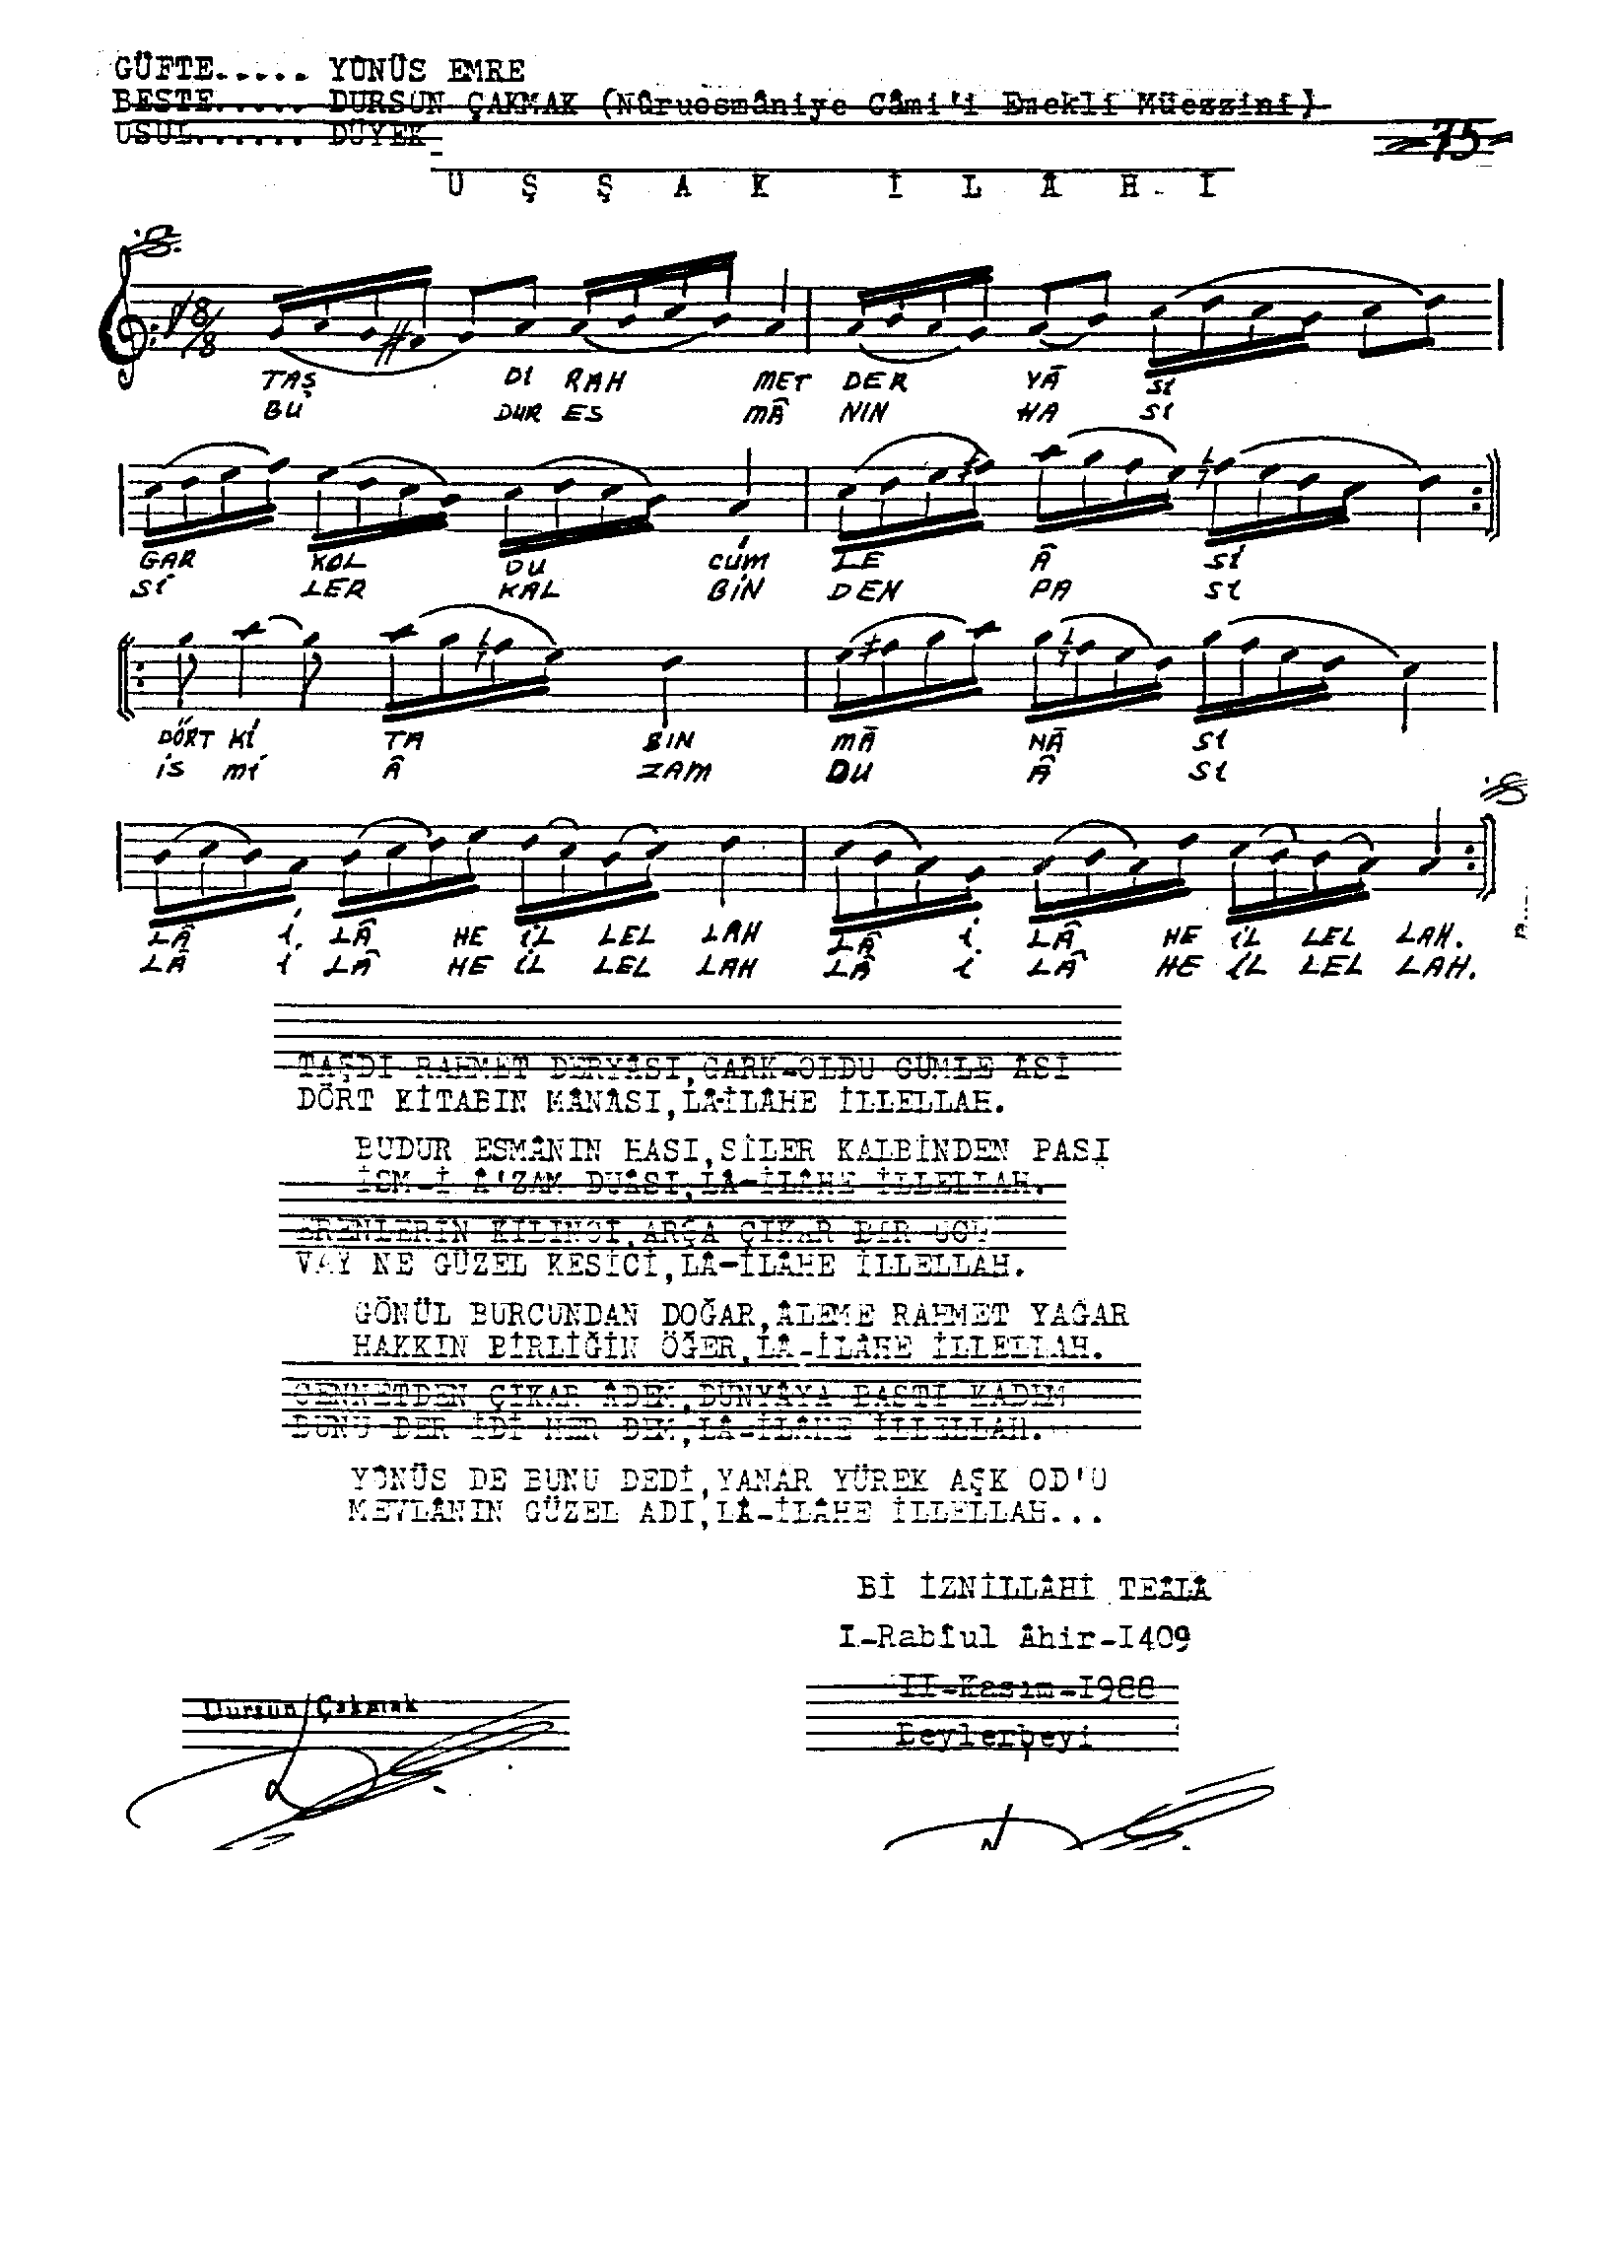 GÜFTE..... YÛNÜS EMRE
BESTE..... DURSUN ÇAKMAK (Nûruosmâniye Câmi'i Emekli Müezzini)
USUL...... DÜYEK
75
U Ş Ş A K İ L Â H İ
8/8
TAŞ DI RAH MET DER YÂ SI
BU DUR ES MÂ NIN HA SI
GAR KOL DU CÜM LE Â Sİ
Sİ LER KAL BİN DEN PA SI
DÖRT Kİ TA BIN MÂ NÂ SI
İS Mİ Â ZAM DU Â SI
LÂ İ LÂ HE İL LEL LAH LÂ İ LÂ HE İL LEL LAH.
LÂ İ LÂ HE İL LEL LAH LÂ İ LÂ HE İL LEL LAH.
TAŞDI RAHMET DERYÂSI,GARK-OLDU CÜMLE ÂSİ
DÖRT KİTABIN MÂNÂSI,LÂ-İLÂHE İLLELLAH.
BUDUR ESMÂNIN HASI,SİLER KALBİNDEN PASI
İSM-İ Â'ZAM DUÂSI,LÂ-İLÂHE İLLELLAH.
ERENLERİN KILINCI,ARŞA ÇIKAR BİR UCU
VAY NE GÜZEL KESİCİ,LÂ-İLÂHE İLLELLAH.
GÖNÜL BURCUNDAN DOĞAR,ÂLEME RAHMET YAĞAR
HAKKIN BİRLİĞİN ÖĞER,LÂ-İLÂHE İLLELLAH.
CENNETDEN ÇIKAR ÂDEM,DÜNYÂYA BASTI KADEM
BUNU DER İDİ HER DEM,LÂ-İLÂHE İLLELLAH.
YÛNÜS DE BUNU DEDİ,YANAR YÜREK AŞK OD'U
MEVLÂNIN GÜZEL ADI,LÂ-İLÂHE İLLELLAH...
Bİ İZNİLLÂHİ TEÂLÂ
I-Rabîul Âhir-I409
II-Kasım-I988
Dursun Çakmak
Beylerbeyi